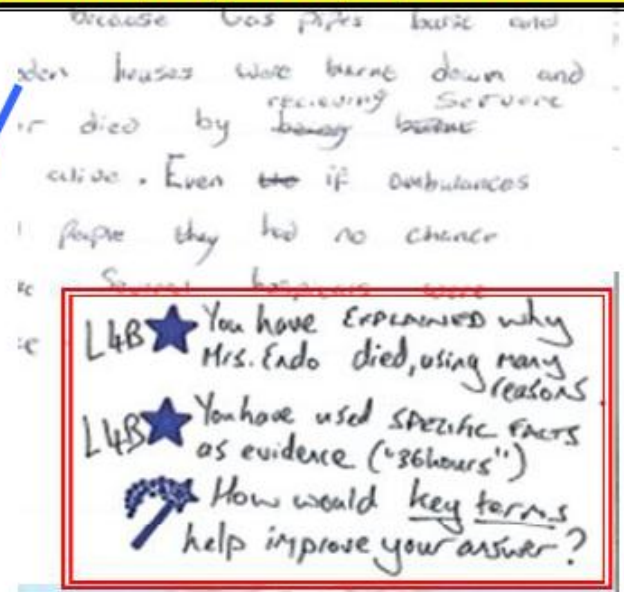 because Gas pipes burst and
oden houses were burnt down and
recieving Servere
r died by being burnt
alive. Even if ambulances
people they had no chance
Several hospitals were
L4B You have EXPLAINED why
Mrs. Endo died, using many
reasons.
L4B You have used SPECIFIC FACTS
as evidence ("36hours")
How would key terms
help improve your answer?